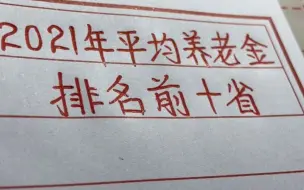 2021年平均养老金
排名前十省